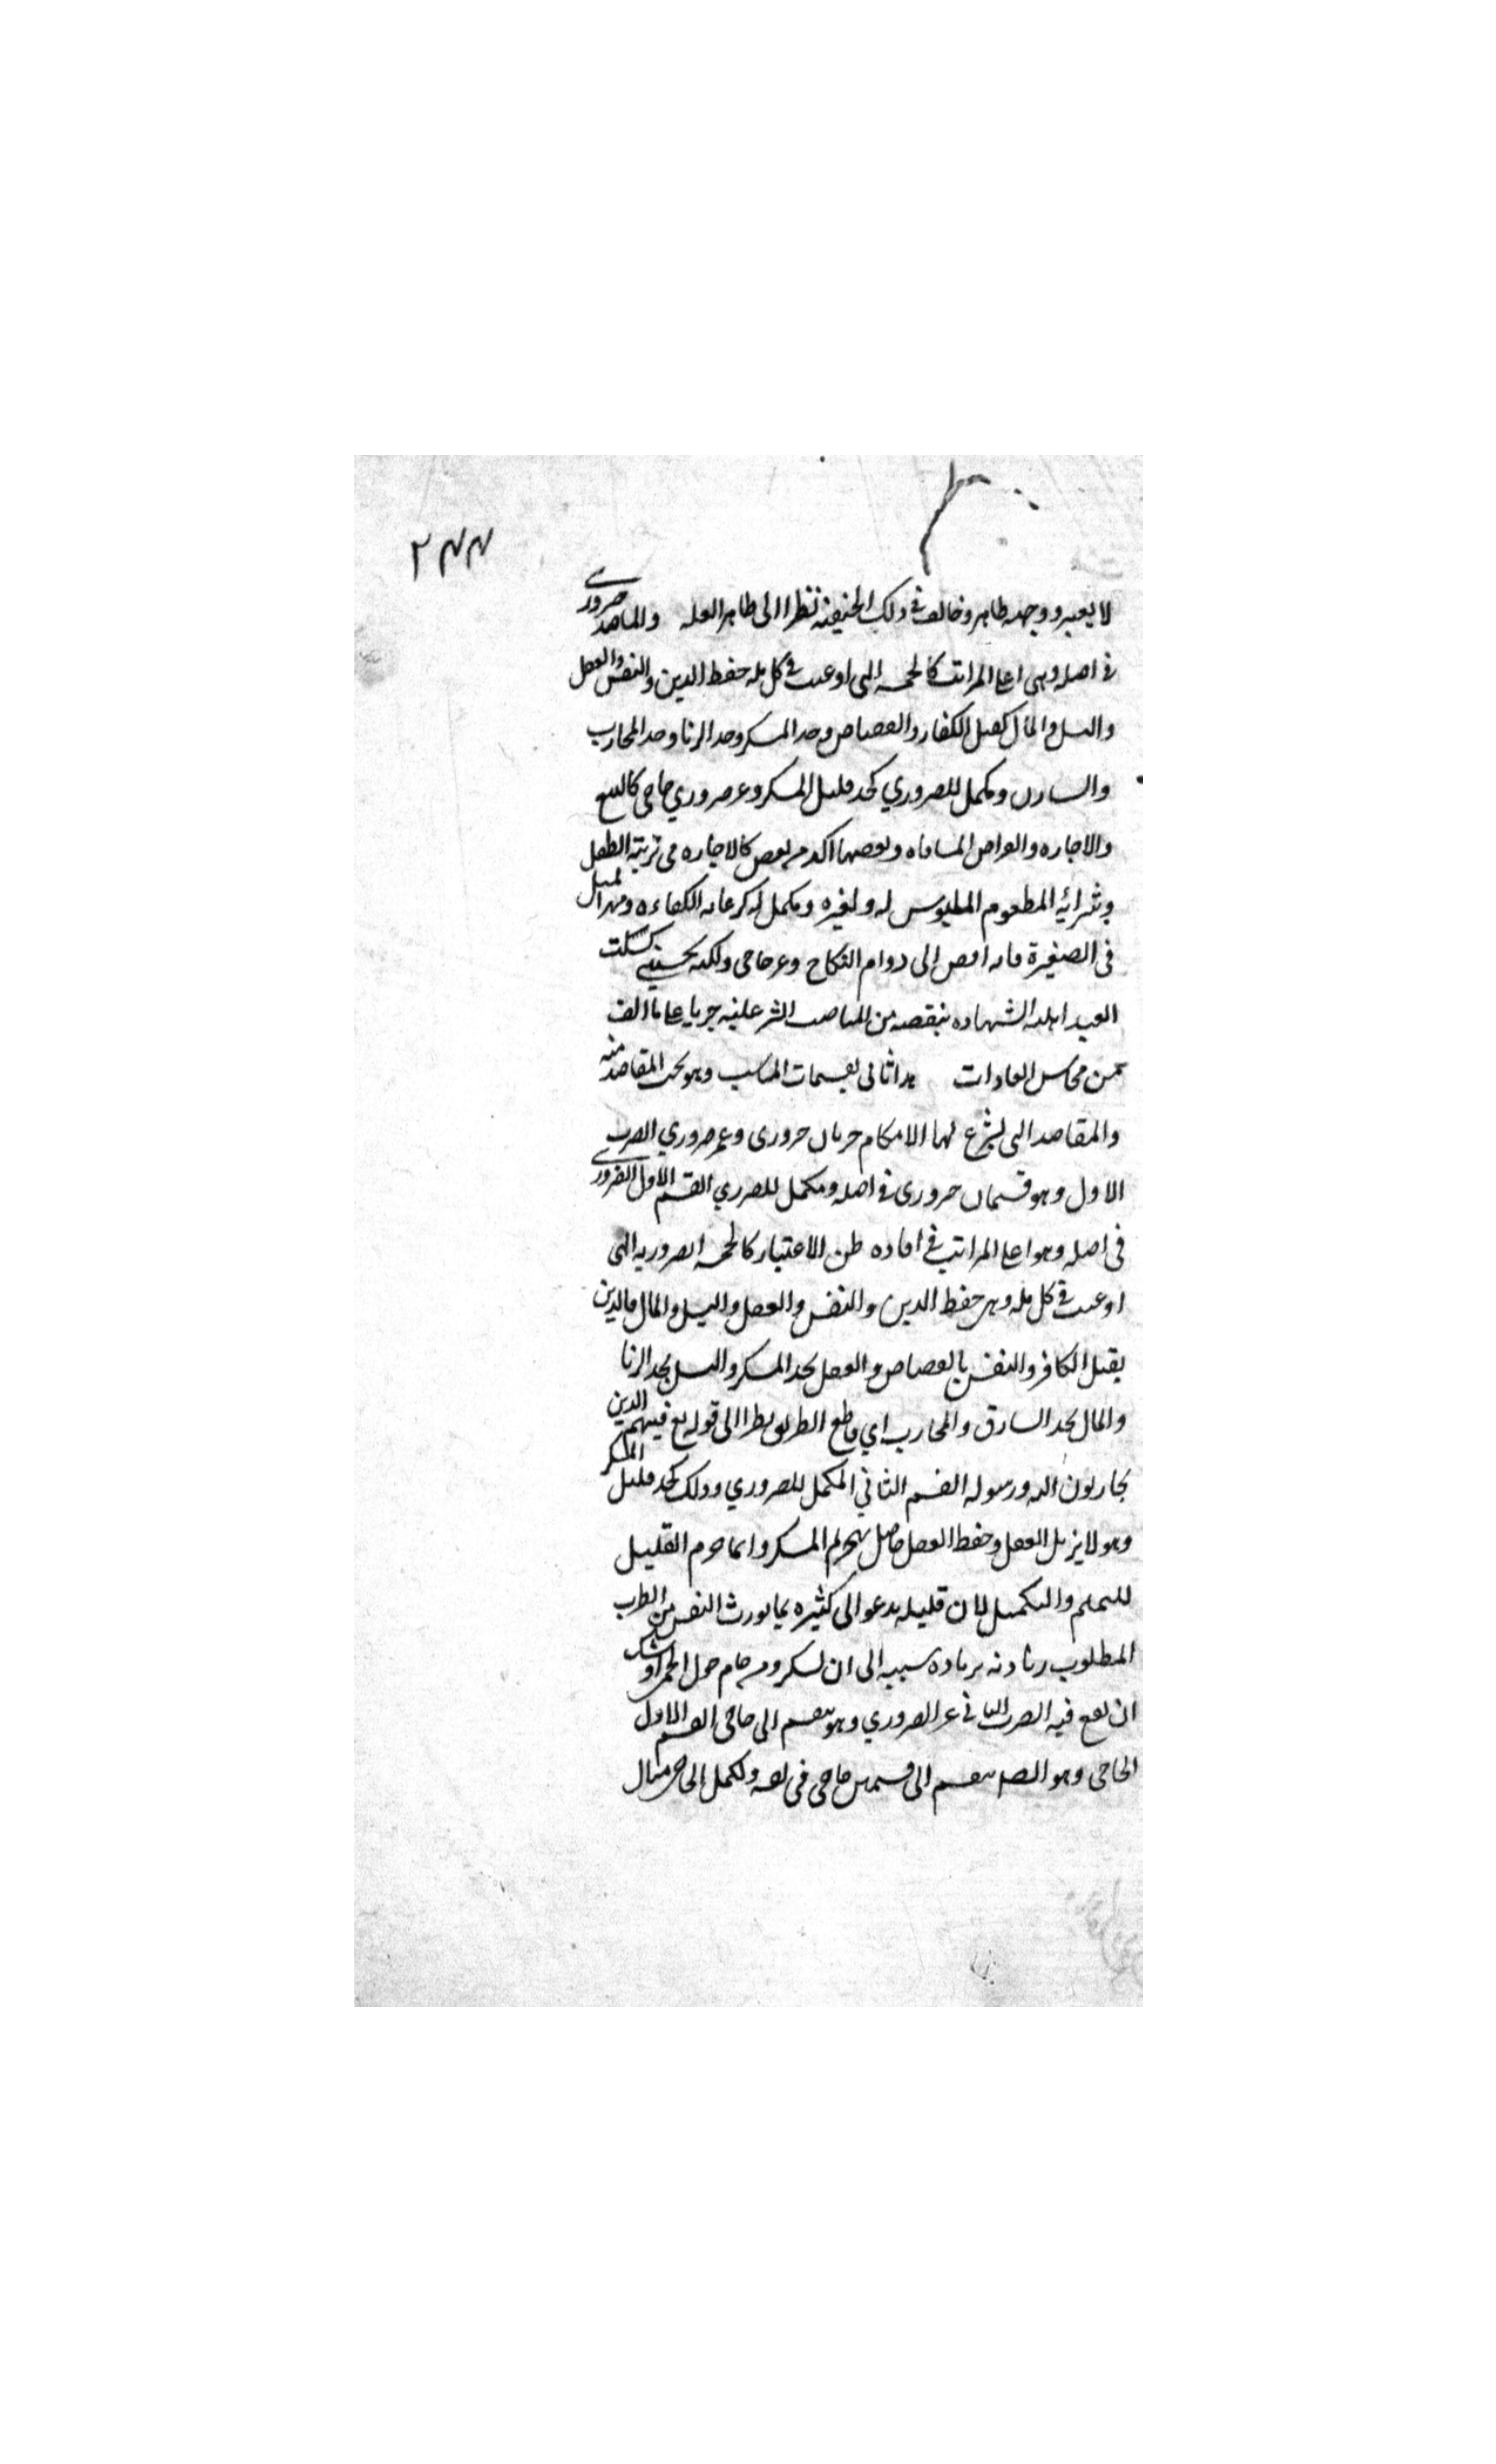 ٢٤٤
لا يعتبر ووجهه ظاهر وخالف في ذلك الحنيفة نظرا الى ظاهر العله والمقاصد ضروري
في اصله وهى اعلا المراتب كالخمسه التى روعيت في كل مله حفظ الدين والنفس والعقل
والنسل والمال كقتل الكفار والقصاص وحد المسكر وحد الزنا وحد المحارب
والسارق ومكمل للضروري كحد قليل المسكر وغير ضروري حاجى كالبيع
والاجاره والقراض المساقاه وبعضها اكد من بعض كالاجاره في تربية الطفل
وشرائه المطعوم الملبوس له ولغيره ومكمل له كرعايه الكفاءه ومهر المثل
فى الصغيرة فانه افضى الى دوام النكاح وغير حاجى ولكنه تحسيني كسلب
العبد اهليه الشهاده بنقصه من المناصب الشرعليه جريا على ما الف
من محاسن العادات هذا ثانى تقسيمات المناسب وهو بحث المقاصد منه
والمقاصد التى شرع لها الاحكام ضربان ضرورى وغير ضروري الضرب
الاول وهو قسمان ضرورى في اصله ومكمل للضرري القسم الاول الضروري
فى اصله وهو اعلا المراتب في افاده ظن الاعتبار كالخمسه الضروريه التى
روعيت في كل مله وهى حفظ الدين والنفس والعقل والنسل والمال فالدين
بقتل الكافر والنفس بالقصاص والعقل بحد المسكر والنسل بحد الزنا
والمال بحد السارق والمحارب اي قاطع الطريق نظرا الى قوله تع فيهم الذين
يحاربون الله ورسوله القسم الثاني المكمل للضروري وذلك كحد قليل المسكر
وهو لا يزيل العقل وحفظ العقل حاصل بتحريم المسكر وانما حرم القليل
للتتميم والتكميل لان قليله يدعو الى كثيره بما يورث النفس من الطرب
المطلوب زيادته بزياده سببه الى ان يسكر ومن حام حول الحمى اوشك
ان يقع فيه الضرب الثاني غير الضروري وهو ينقسم الى حاجى القسم الاول
الحاجى وهو ايضا ينقسم الى قسمين حاجى فى نفسه ومكمل الحاجى مثال